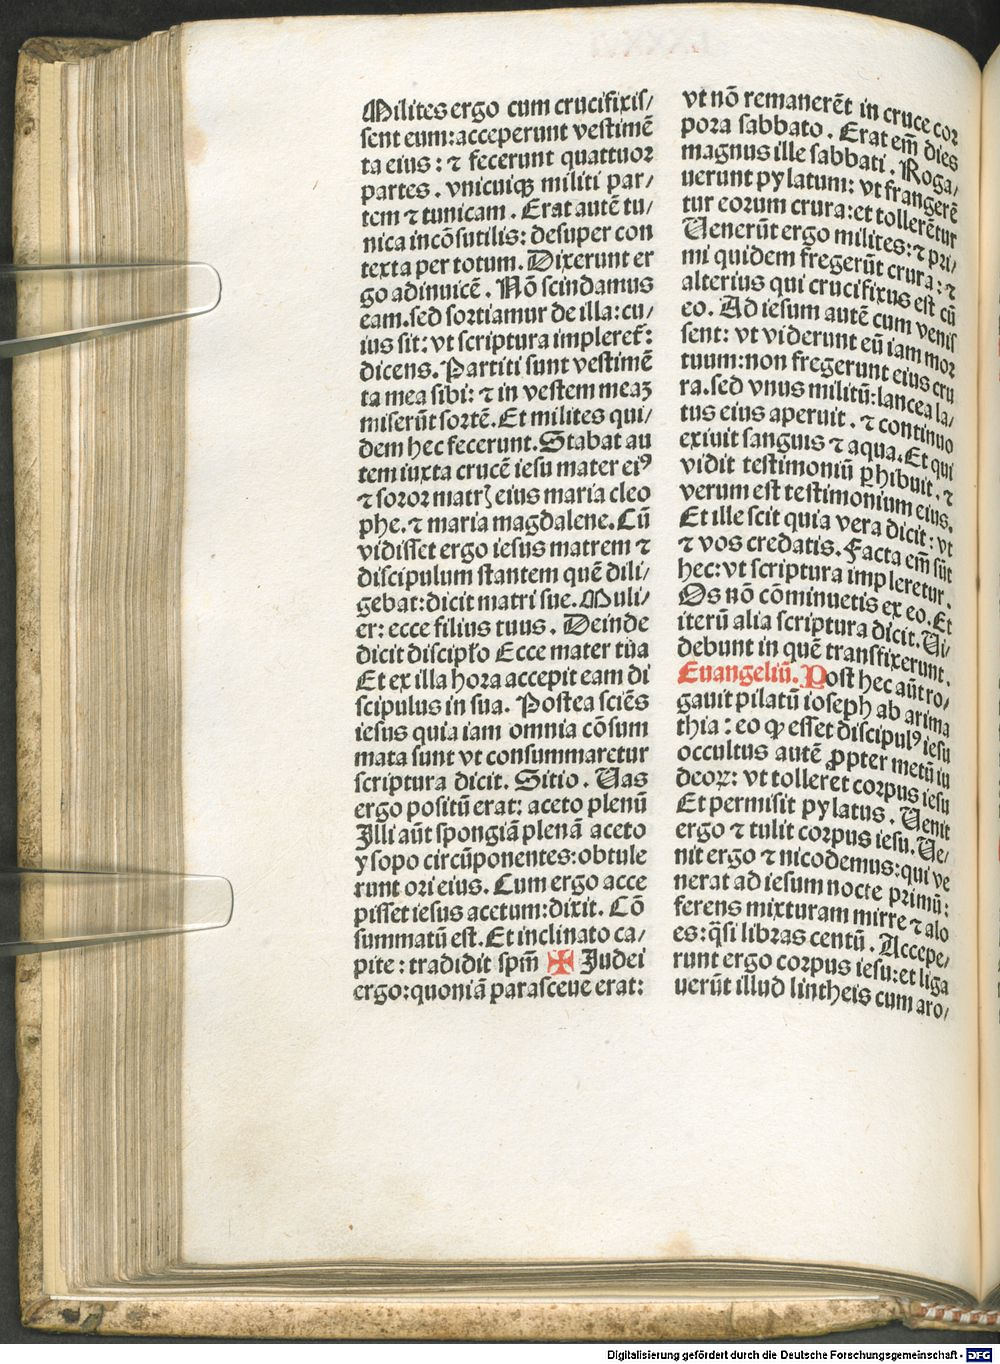 Milites ergo cum crucifixis/
sent eum: acceperunt vestimē
ta eius: ⁊ fecerunt quattuor
partes. vnicuiqꝫ militi par/
tem ⁊ tunicam. Erat autē tu/
nica incōsutilis: desuper con
texta per totum. Dixerunt er
go adinuicē. Nō scindamus
eam. sed sortiamur de illa: cu/
ius sit: vt scriptura impleret̄:
dicens. Partiti sunt vestimē
ta mea sibi: ⁊ in vestem meaꝫ
miserūt sortē. Et milites qui/
dem hec fecerunt. Stabat au
tem iuxta crucē iesu mater eiꝰ
⁊ soror matrꝭ eius maria cleo
phe. ⁊ maria magdalene. Cū
vidisset ergo iesus matrem ⁊
discipulum stantem quē dili/
gebat: dicit matri sue. Muli/
er: ecce filius tuus. Deinde
dicit discipło Ecce mater tua
Et ex illa hora accepit eam di
scipulus in sua. Postea sciēs
iesus quia iam omnia cōsum
mata sunt vt consummaretur
scriptura dicit. Sitio. Uas
ergo positū erat: aceto plenū
Illi aūt spongiā plenā aceto
ysopo circūponentes: obtule
runt ori eius. Cum ergo acce
pisset iesus acetum: dixit. Cō
summatū est. Et inclinato ca/
pite: tradidit spm̄ ✠ Judei
ergo: quoniā parasceue erat:
vt nō remanerēt in cruce cor
pora sabbato. Erat em̄ dies
magnus ille sabbati. Roga/
uerunt pylatum: vt frangerē
tur eorum crura: et tollerētur
Uenerūt ergo milites: ⁊ pri/
mi quidem fregerūt crura: ⁊
alterius qui crucifixus est cū
eo. Ad iesum autē cum venis
sent: vt viderunt eū iam mor
tuum: non fregerunt eius cru
ra. sed vnus militū: lancea la/
tus eius aperuit. ⁊ continuo
exiuit sanguis ⁊ aqua. Et qui
vidit testimoniū ꝑhibuit. ⁊
verum est testimonium eius.
Et ille scit quia vera dicit: vt
⁊ vos credatis. Facta em̄ sūt
hec: vt scriptura impleretur.
Os nō cōminuetis ex eo. Et
iterū alia scriptura dicit. Ui/
debunt in quē transfixerunt.
Euangeliū. Post hec aūt ro/
gauit pilatū ioseph ab arima
thia: eo ꝙ esset discipulꝰ iesu
occultus autē ꝓpter metū iu
deoꝝ: vt tolleret corpus iesu
Et permisit pylatus. Uenit
ergo ⁊ tulit corpus iesu. Ue/
nit ergo ⁊ nicodemus: qui ve
nerat ad iesum nocte primū:
ferens mixturam mirre ⁊ alo
es: q̄si libras centū. Accepe/
runt ergo corpus iesu: et liga
uerūt illud lintheis cum aro/
Digitalisierung gefördert durch die Deutsche Forschungsgemeinschaft - DFG